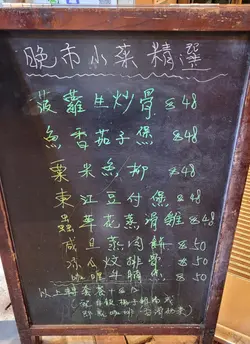 晚市小菜精選
菠蘿生炒骨 $48
魚香茄子煲 $48
粟米魚柳 $48
東江豆付保 $48
虫草花蒸滑雞 $48
咸旦蒸肉餅 $50
涼瓜炆排骨 $50
咖喱牛腩煲 $50
以上轉